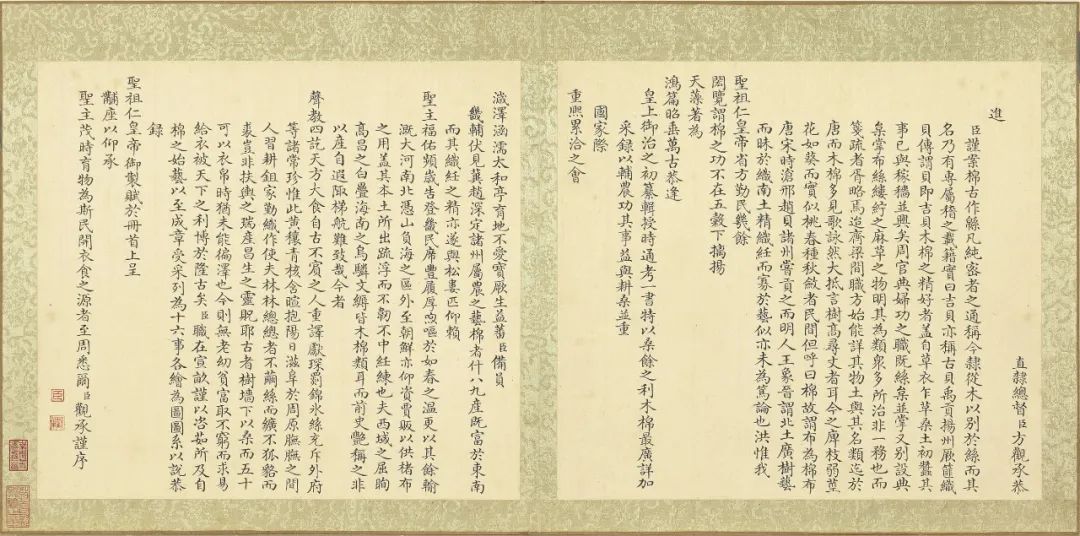 直隸總督臣方觀承恭
進
臣謹案棉古作緜凡純密者之通稱今隸從木以別於絲而其
名乃有專屬稽之載籍實曰吉貝亦稱古貝禹貢揚州厥篚織
貝傳謂貝即吉貝木棉之精好者蓋自草衣乍革桑土初蠶其
事已與稼穡並興矣周官典婦功之職既絲枲並掌又別設典
枲掌布緦縷紵之麻草之物明其為類衆多所治非一務也而
箋疏者胥略焉迨齊梁間職方始能詳其物土與其名類迄於
唐而木棉多見歌詠然大抵言樹高尋丈者耳今之庳枝弱莖
花如葵而實似桃春種秋斂者民間但呼曰棉故謂布為棉布
唐宋時滄邢趙貝諸州嘗貢之而明人王象晉謂北土廣樹藝
而昧於織南土精織絍而寡於藝似亦未為篤論也洪惟我
聖祖仁皇帝省方勤民幾餘
閎覽謂棉之功不在五穀下摛揚
天藻著為
鴻篇昭垂萬古恭逢
皇上御治之初纂輯授時通考一書特以桑餘之利木棉最廣詳加
采録以輔農功其事益與耕桑並重
國家際
重熙累洽之會
濊澤涵濡太和亭育地不愛寶厥生益蕃臣備員
畿輔伏見冀趙深定諸州屬農之藝棉者什八九產既富於東南
而其織絍之精亦遂與松婁匹仰賴
聖主福佑頻歲告登畿民席豐履厚煦嘔於如春之温更以其餘輸
溉大河南北憑山負海之區外至朝鮮亦仰資賈販以供楮布
之用蓋其本土所出疏浮而不韌不中絍練也夫西域之屈眴
高昌之白疊海南之烏驎文縟皆木棉類耳而前史艷稱之非
以産自遐陬梯航難致哉今者
聲教四訖天方大食自古不賓之人重譯獻琛罽錦氷絲充斥外府
等諸常珍惟此黃穰青核含暄抱陽日滋阜於周原膴膴之間
人習耕鉏家勤織作使夫林林總總者不繭絲而纊不狐貉而
裘豈非扶輿之瑞産昌生之靈貺耶古者樹墻下以桑而五十
可以衣帛時猶未能徧澤也今則無老幼貧富取不窮而求易
給衣被天下之利博於隆古矣臣職在宣畝謹以咨茹所及自
棉之始藝以至成章受采列為十六事各繪為圖圖系以説恭
録
聖祖仁皇帝御製賦於冊首上呈
黼座以仰承
聖主茂時育物為斯民開衣食之源者至周悉爾臣觀承謹序